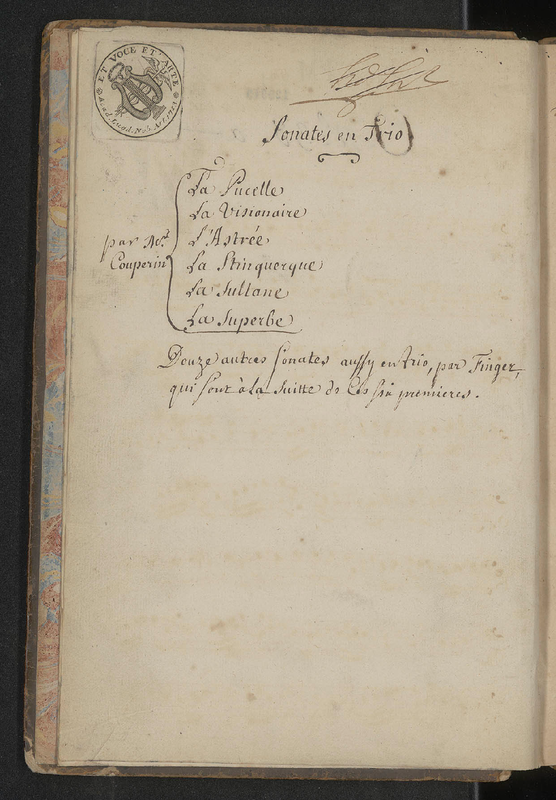 ET VOCE ET ARTE
Sonates en Trio
La Pucelle
La Visionaire
L'Astrée
La Stinquerque
La Sultane
La Superbe
par Mr.
Couperin
Douze autres Sonates aussy en trio, par Finger,
qui sont à la Suitte de Ces six premieres.